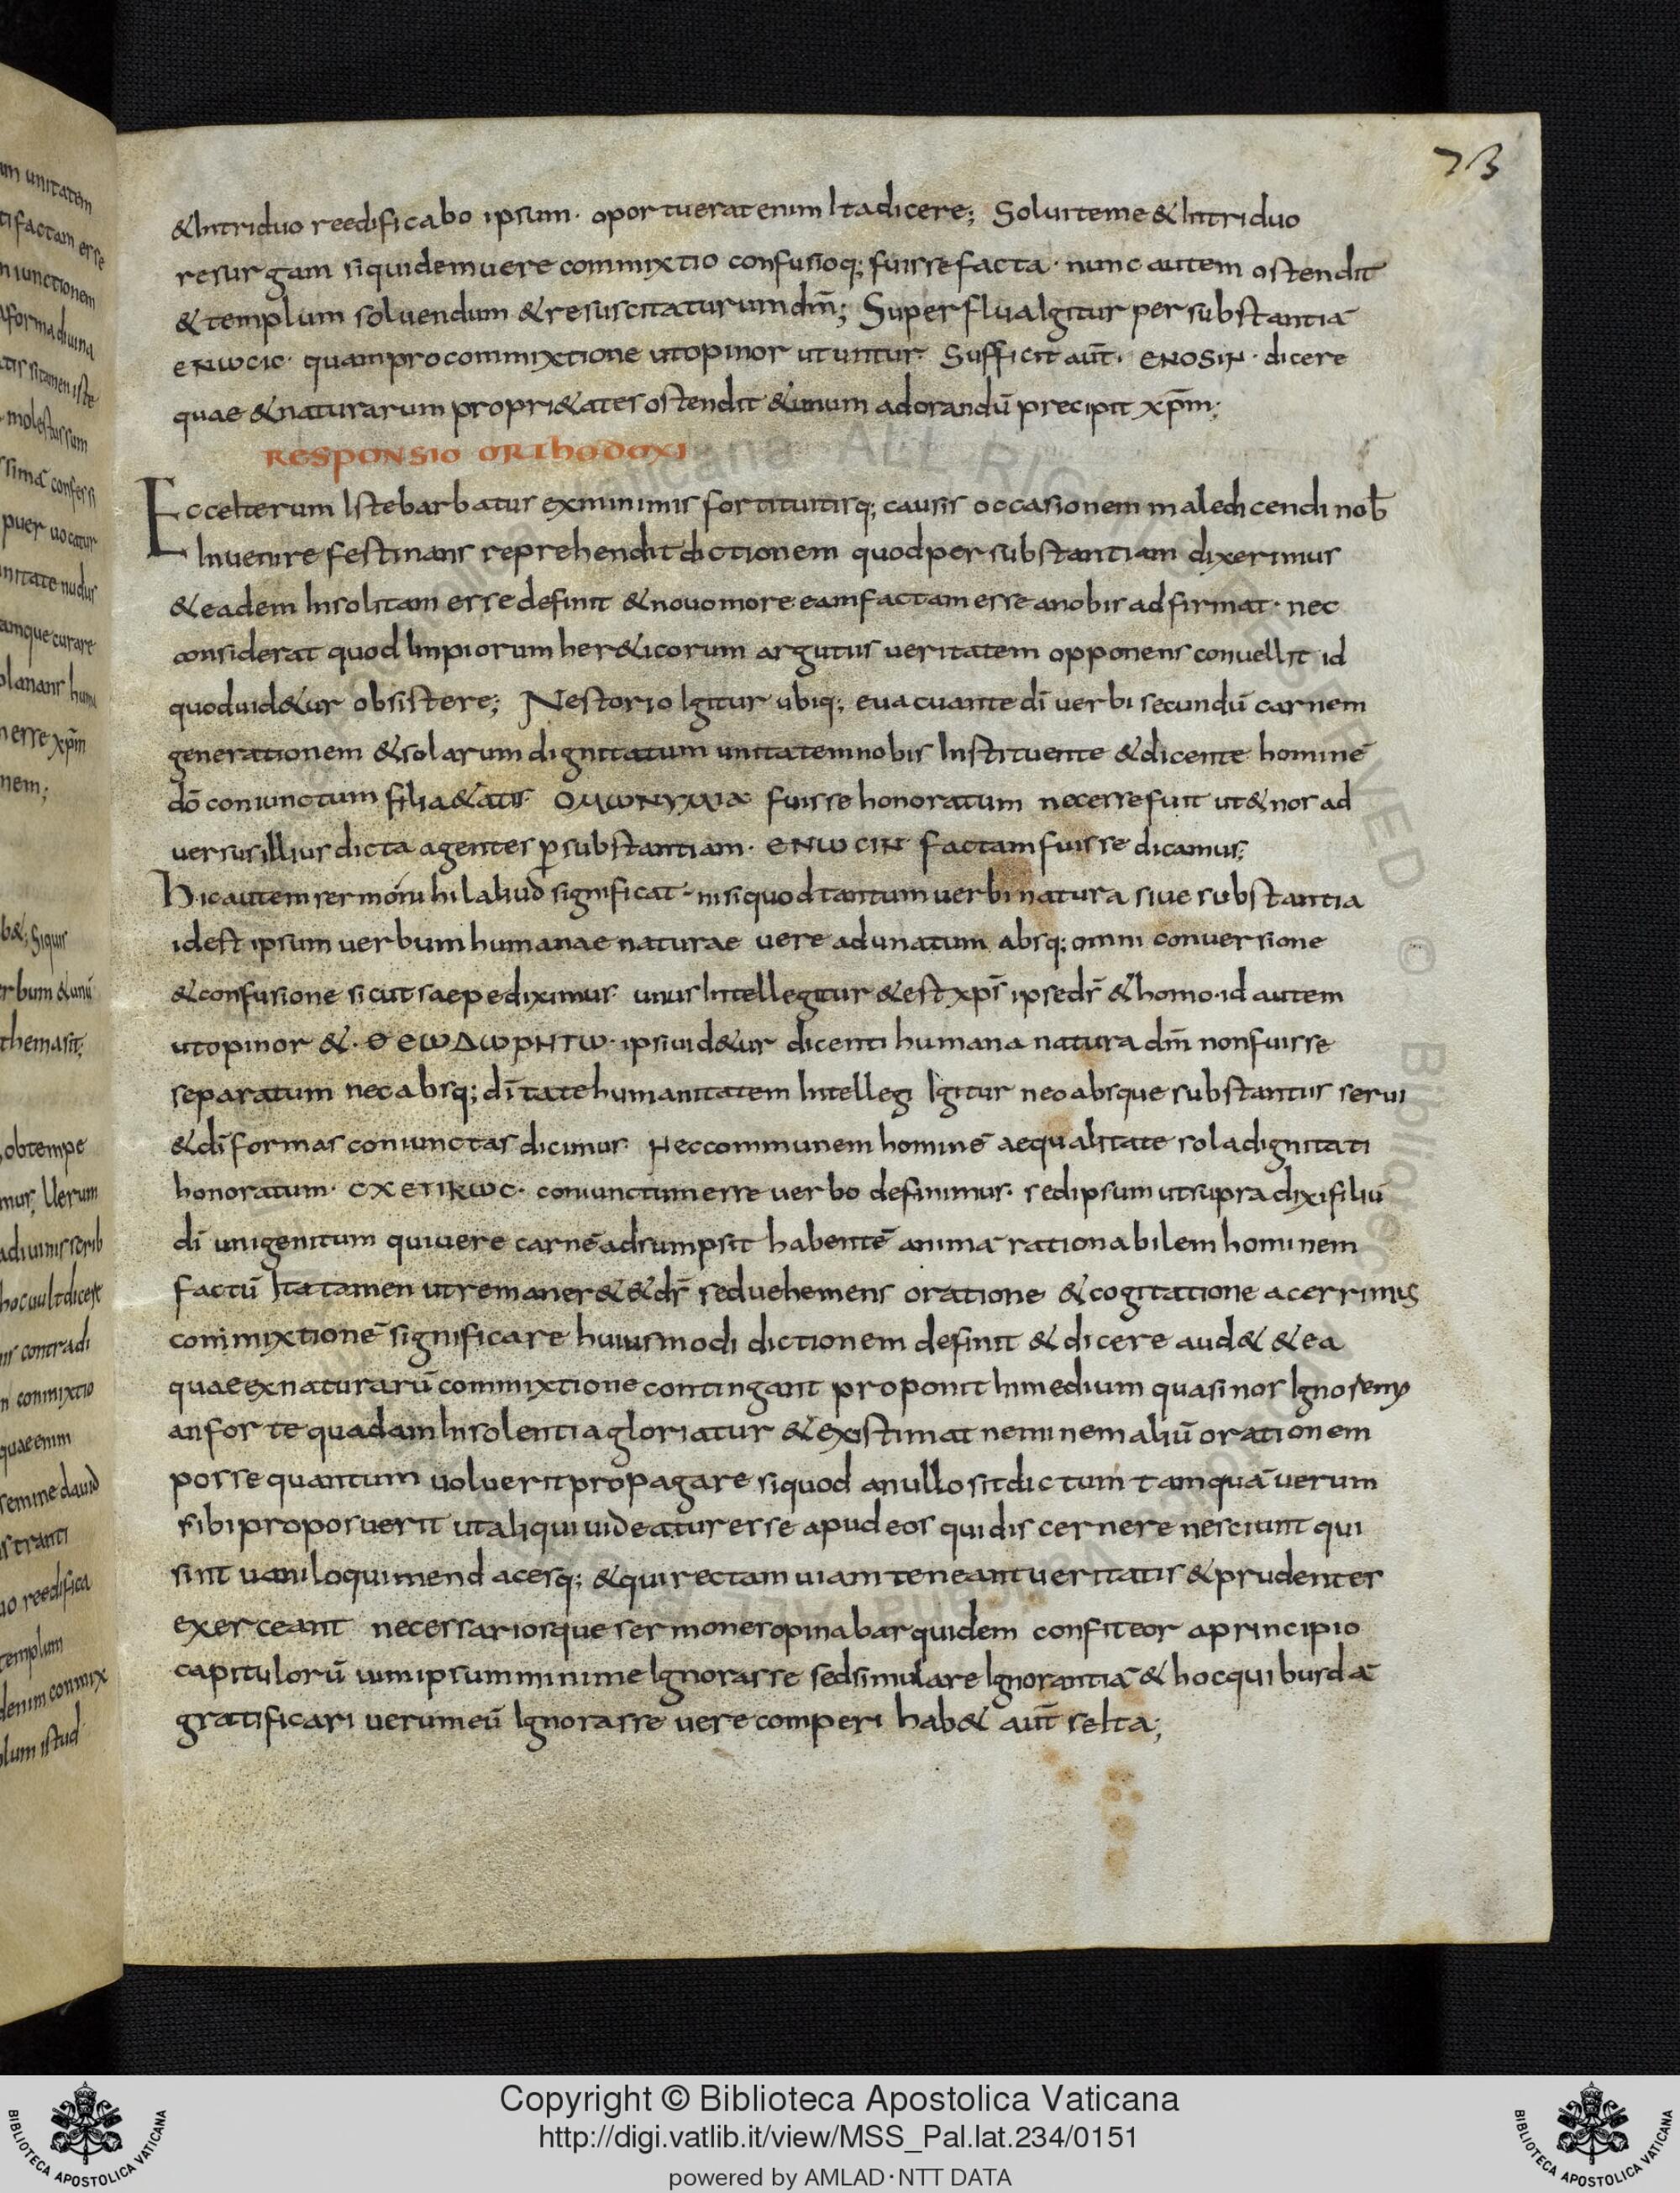 73
& In triduo reedificabo ipsum· oportuerat enim Ita dicere; Soluite me & In triduo
resurgam siquidem uere commixtio confusioq; fuisse facta· nunc autem ostendit
& templum soluendum & resuscitaturum dm̄; Superflua Igitur per substantiā
ENωCIC· quam pro commixtione ut opinor utuntur· Sufficit aut̄· ENOSIN· dicere
quae & naturarum propri&ates ostendit & unum adorandū precipit xp̄m;
RESPONSIO ORTHODOXI
Ecce Iterum Iste barbatus ex minimis fortituitisq; causis occasionem maledicendi nob̄
Inuenire festinans reprehendit dictionem quod per substantiam dixerimus
& eadem Insolitam esse definit & nouo more eam factam esse a nobis adfirmat· nec
considerat quod Impiorum her&icorum argutus ueritatem opponens conuellit id
quod uid&ur obsistere; Nestorio Igitur ubiq; euacuante dī uerbi secundū carnem
generationem & solarum dignitatum unitatem nobis Instituente & dicente hominē
dō coniunctum filia&atis· ΟΜωΝΥΜΙΑ fuisse honoratum necesse fuit ut & nos ad
uersus illius dicta agentes p̄ substantiam· ENωCIN factam fuisse dicamus;
Hic autem sermo nihil aliud significat· nisi quod tantum uerbi natura siue substantia
id est ipsum uerbum humanae naturae uere adunatum absq; omni conuersione
& confusione sicut saepe diximus· unus Intellegitur & est xp̄s ipse ds̄ & homo· id autem
ut opinor &· ΘΕωΔωΡΗΤω· ipsi uid&ur dicenti humana natura dm̄ non fuisse
separatum nec absq; dītate humanitatem Intellegi Igitur neo absque substantiis serui
& dī formas coniunctas dicimus· Nec communem hominē aequalitate sola dignitati
honoratum· CXETIKωC· coniunctum esse uerbo definimus· sed ipsum ut supra dixi filiū
dī unigenitum qui uere carnē adsumpsit habentē animā rationabilem hominem
factū Ita tamen ut remaner& & ds̄ sed uehemens oratione & cogitatione acerrimus
conmixtionē significare huiusmodi dictionem definit & dicere aud& & ea
quae ex naturarū commixtione contingant proponit In medium quasi nos Ignoremus
an forte quadam Insolentia gloriatur & existimat neminem aliū orationem
posse quantum uoluerit propagare siquod a nullo sit dictum tamquā uerum
sibi proposuerit ut aliqui uideatur esse apud eos qui discernere nesciunt qui
sint uaniloqui mendacesq; & qui rectam uiam teneant ueritatis & prudenter
exerceant necessariosque sermones opinabar quidem confiteor a principio
capitulorū uim ipsum minime Ignorasse sed simulare Ignorantiā & hoc quibusdā
gratificari uerum eū Ignorasse uere comperi hab& aut̄ se Ita;
Copyright © Biblioteca Apostolica Vaticana
http://digi.vatlib.it/view/MSS_Pal.lat.234/0151
powered by AMLAD·NTT DATA